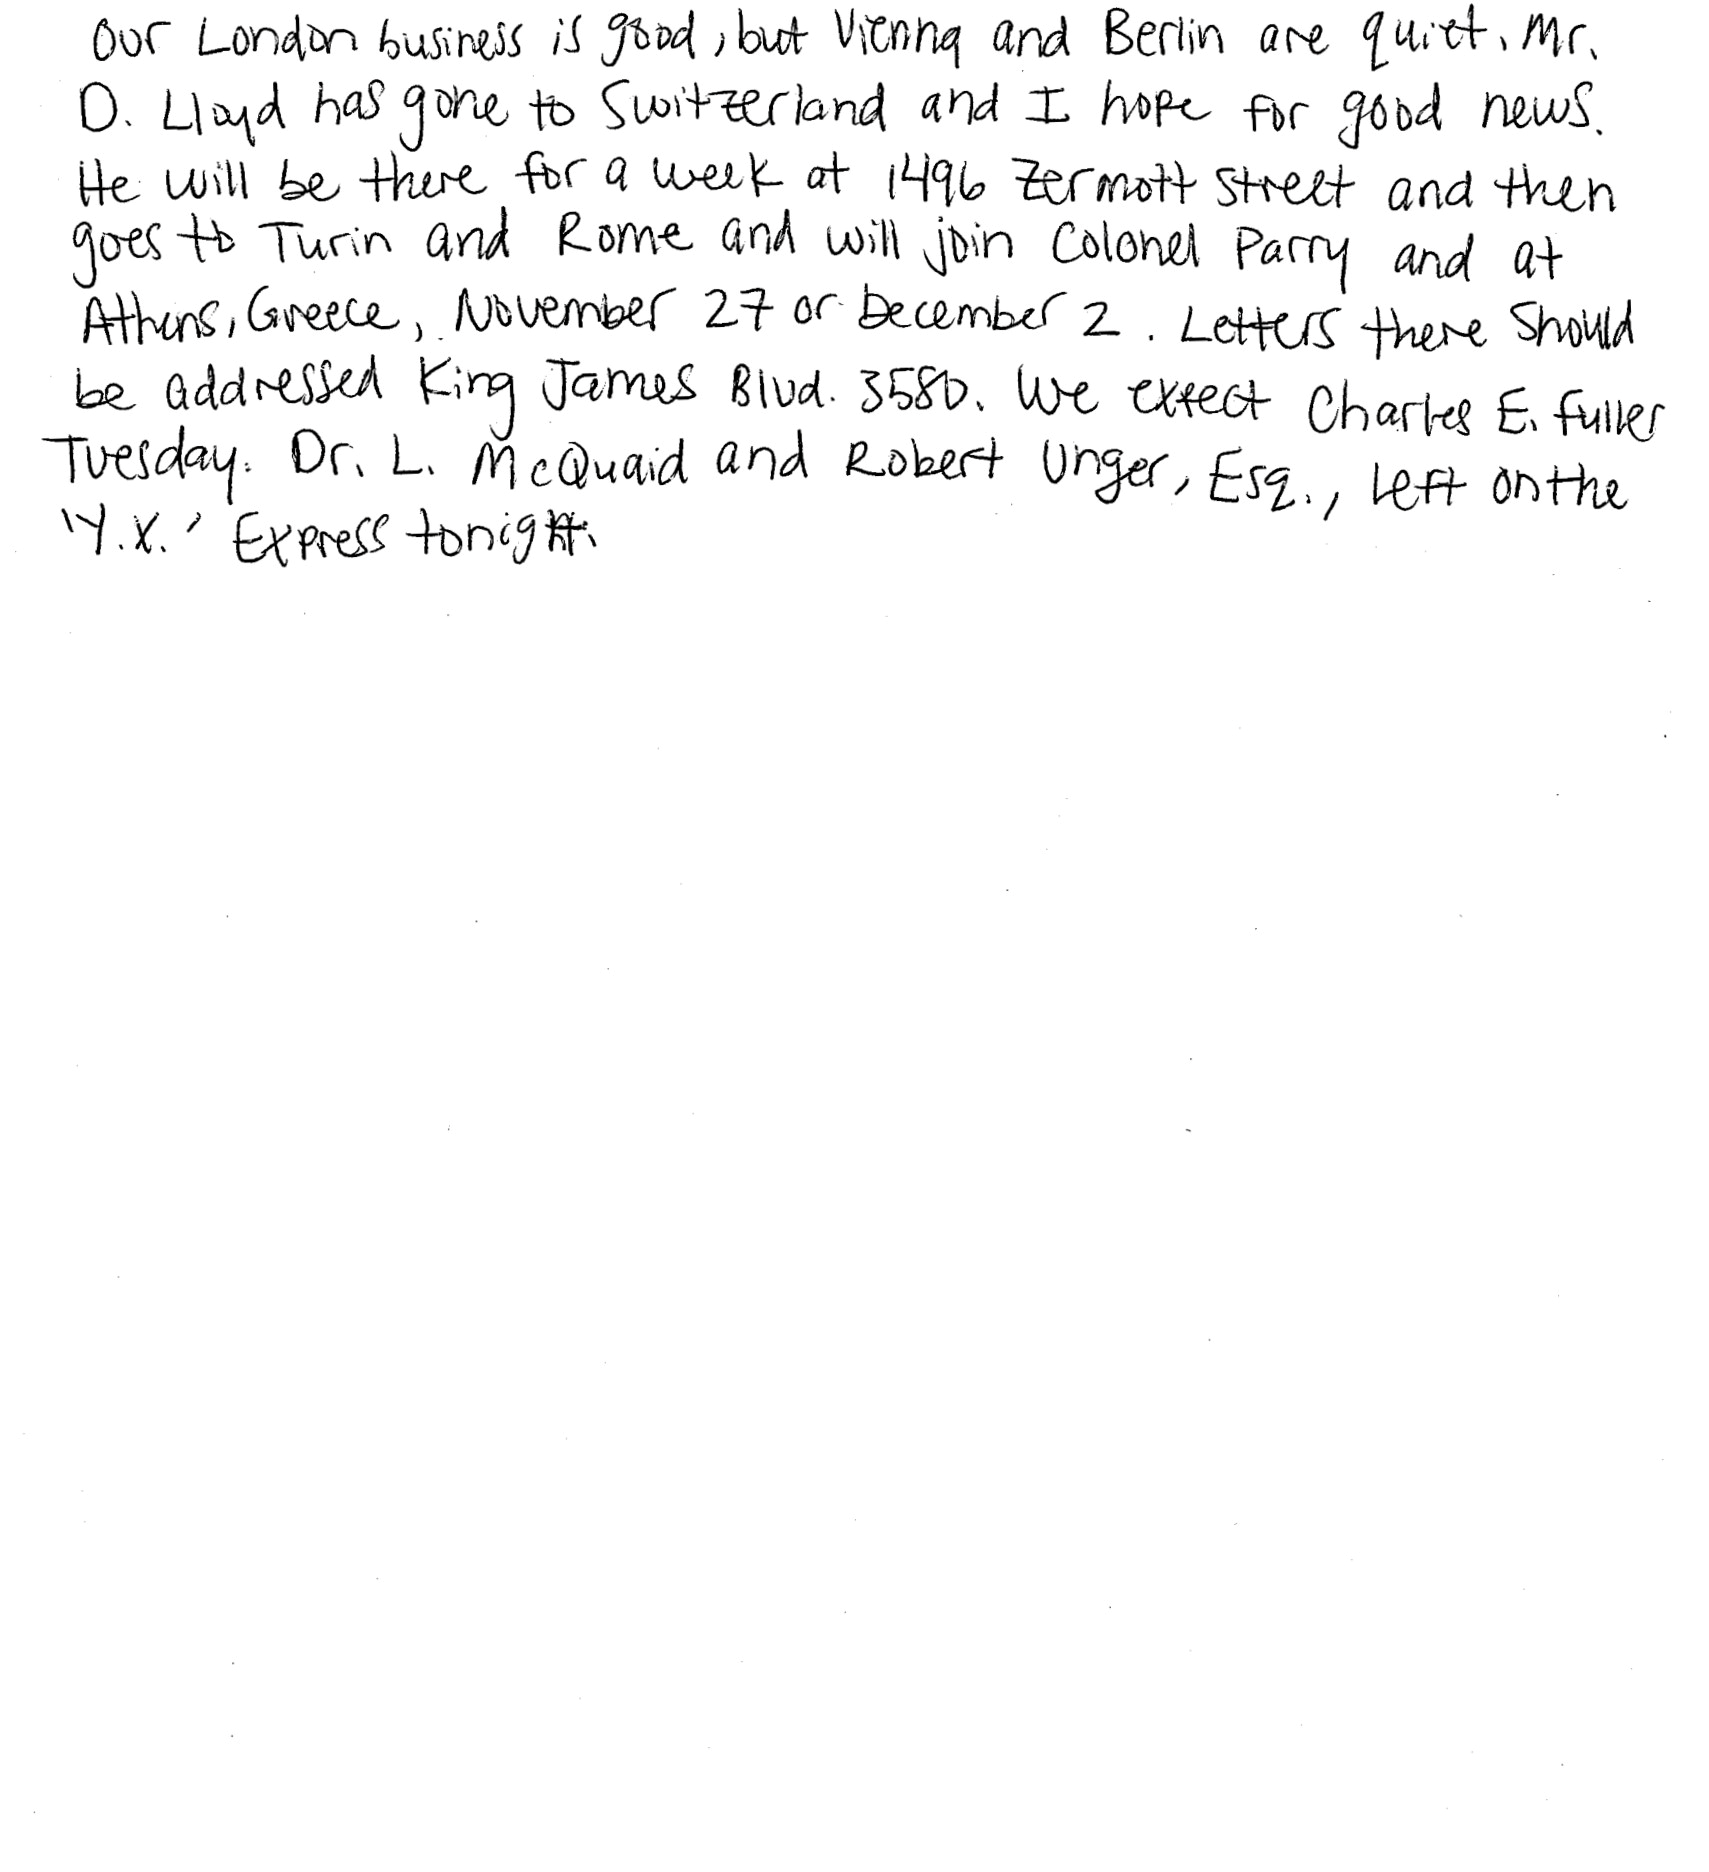 Our London business is good, but Vienna and Berlin are quiet. Mr.
D. Lloyd has gone to Switzerland and I hope for good news.
He will be there for a week at 1496 Zermott Street and then
goes to Turin and Rome and will join Colonel Parry and at
Athens, Greece, November 27 or December 2. Letters there Should
be addressed King James Blvd. 3580. We expect Charles E. Fuller
Tuesday. Dr. L. McQuaid and Robert Unger, Esq., left on the
'Y.X.' Express tonight.